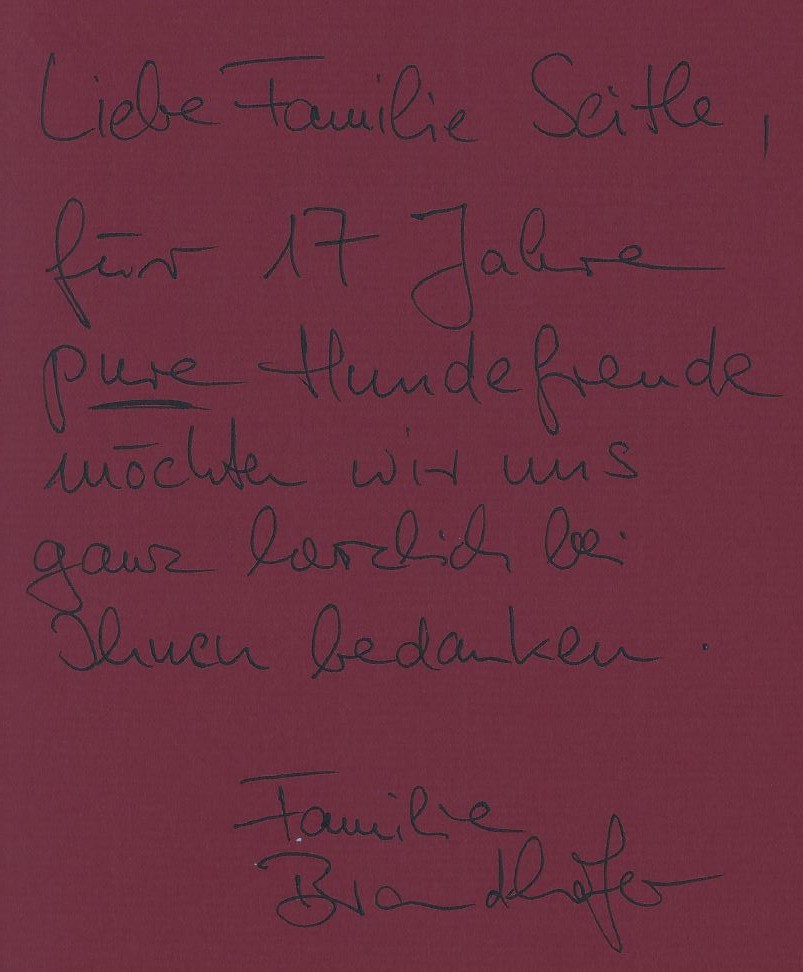 Liebe Familie Seitle,
für 17 Jahre
pure Hundefreude
möchten wir uns
ganz herzlich bei
Ihnen bedanken.
Familie
Brandhofer